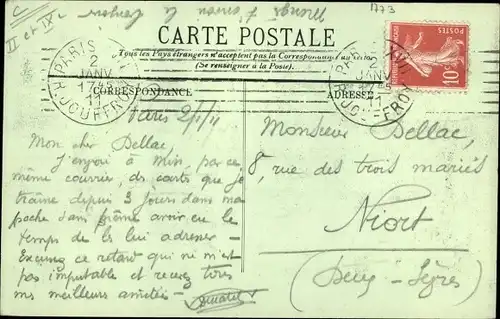 II et IX
1773
CARTE POSTALE
Tous les Pays étrangers n'acceptent pas la Correspondance au recto
(Se renseigner à la Poste).
PARIS
2
JANV
1745
11
R. JOUFFROY
CORRESPONDANCE
ADRESSE
POSTES
10
Paris 2/1/11
Mon cher Dellac,
J'envoie à Min, par ce
même courrier, des cartes que je
traîne depuis 3 jours dans ma
poche sans même avoir eu le
temps de les lui adresser -
Excusez ce retard qui ne m'est
pas imputable et recevez tous
mes meilleurs amitiés -
Monsieur Dellac,
8, rue des trois mariés
Niort
(Deux-Sèvres)